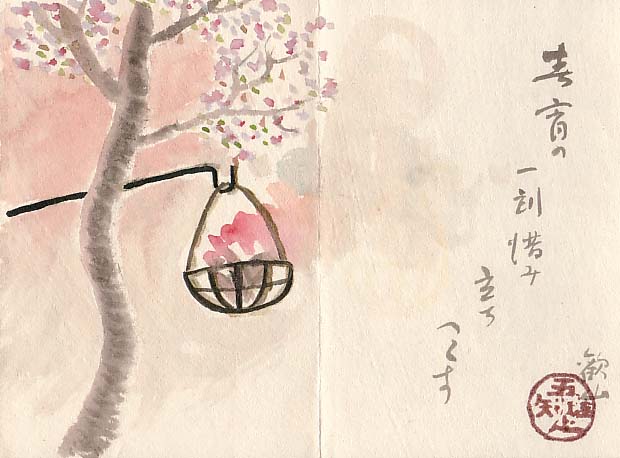 春宵の
一刻惜み
立ち
つくす
歓山